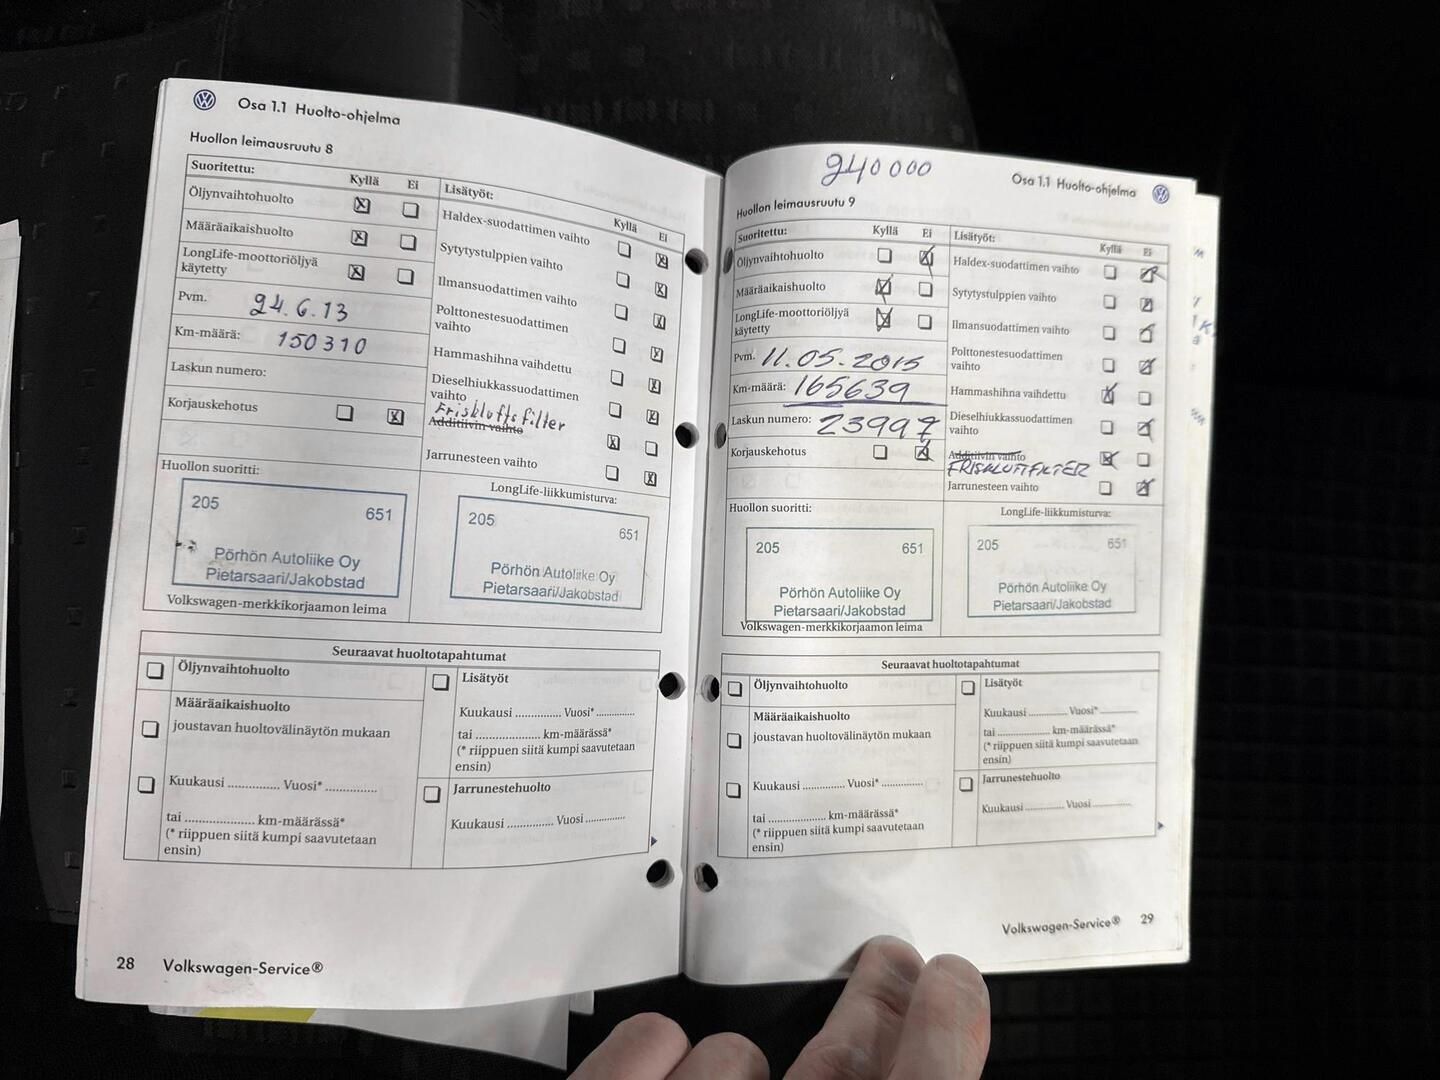 Osa 1.1 Huolto-ohjelma
Huollon leimausruutu 8
Suoritettu:
Kyllä
Ei
Öljynvaihtohuolto
Määräaikaishuolto
LongLife-moottoriöljyä
käytetty
Pvm. 24.6.13
Km-määrä: 150310
Laskun numero:
Korjauskehotus
Huollon suoritti:
205
651
Pörhön Autoliike Oy
Pietarsaari/Jakobstad
Volkswagen-merkkikorjaamon leima
Lisätyöt:
Kyllä
Ei
Haldex-suodattimen vaihto
Sytytystulppien vaihto
Ilmansuodattimen vaihto
Polttonestesuodattimen
vaihto
Hammashihna vaihdettu
Dieselhiukkassuodattimen
vaihto
Friskluftsfilter
Additiivin vaihto
Jarrunesteen vaihto
LongLife-liikkumisturva:
205
651
Pörhön Autoliike Oy
Pietarsaari/Jakobstad
Seuraavat huoltotapahtumat
Öljynvaihtohuolto
Määräaikaishuolto
joustavan huoltovälinäytön mukaan
Kuukausi .............. Vuosi* ..............
tai ................... km-määrässä*
(* riippuen siitä kumpi saavutetaan
ensin)
Lisätyöt
Kuukausi ............. Vuosi* ............
tai .................... km-määrässä*
(* riippuen siitä kumpi saavutetaan
ensin)
Jarrunestehuolto
Kuukausi ............. Vuosi ............
28 Volkswagen-Service®
240000
Osa 1.1 Huolto-ohjelma
Huollon leimausruutu 9
Suoritettu:
Kyllä
Ei
Öljynvaihtohuolto
Määräaikaishuolto
LongLife-moottoriöljyä
käytetty
Pvm. 11.05.2015
Km-määrä: 165639
Laskun numero: 23997
Korjauskehotus
Huollon suoritti:
205
651
Pörhön Autoliike Oy
Pietarsaari/Jakobstad
Volkswagen-merkkikorjaamon leima
Lisätyöt:
Kyllä
Ei
Haldex-suodattimen vaihto
Sytytystulppien vaihto
Ilmansuodattimen vaihto
Polttonestesuodattimen
vaihto
Hammashihna vaihdettu
Dieselhiukkassuodattimen
vaihto
Additiivin vaihto
FRISKLUFTFILTER
Jarrunesteen vaihto
LongLife-liikkumisturva:
205
651
Pörhön Autoliike Oy
Pietarsaari/Jakobstad
Seuraavat huoltotapahtumat
Öljynvaihtohuolto
Määräaikaishuolto
joustavan huoltovälinäytön mukaan
Kuukausi ............. Vuosi* .............
tai .................. km-määrässä*
(* riippuen siitä kumpi saavutetaan
ensin)
Lisätyöt
Kuukausi ............ Vuosi* ............
tai ................. km-määrässä*
(* riippuen siitä kumpi saavutetaan
ensin)
Jarrunestehuolto
Kuukausi ............ Vuosi ............
Volkswagen-Service® 29